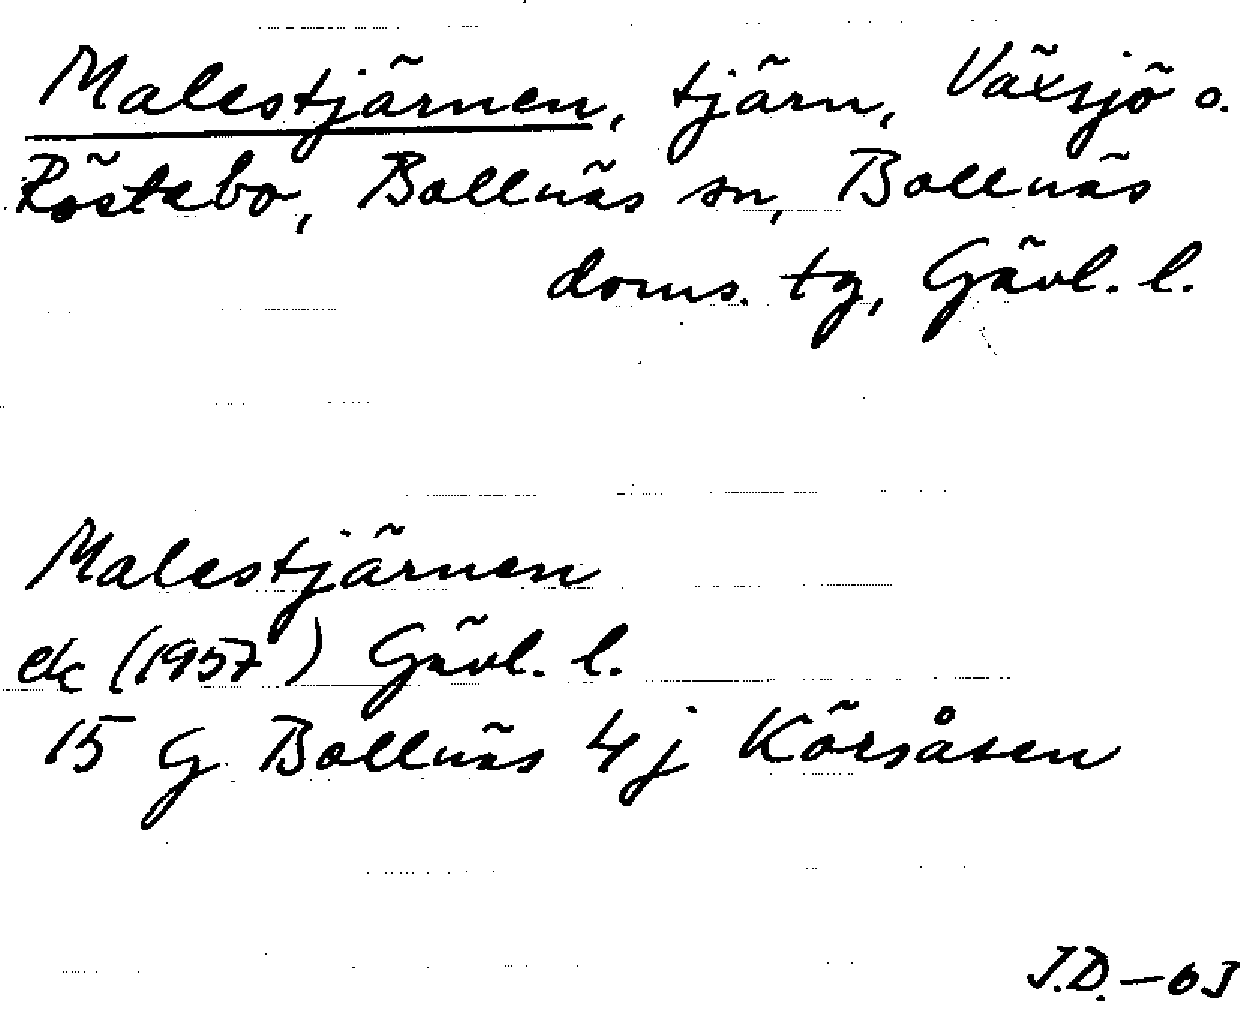 Malestjärnen, tjärn, Växsjö o.
Röstebo, Bollnäs sn, Bollnäs
doms. tg, Gävl. l.
Malestjärnen
ek (1957) Gävl. l.
15 G Bollnäs 4j Körsåsen
J.D. – 63